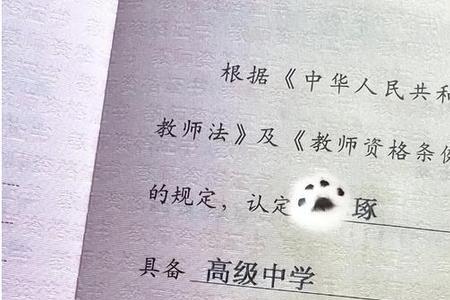 根据《中华人民共和
教师法》及《教师资格条例
的规定，认定 琢
具备 高级中学